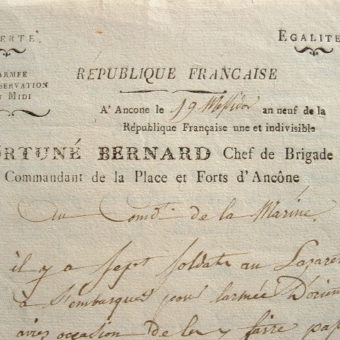 ERTÉ. ÉGALITÉ
ARMÉE
SERVATION
MIDI
RÉPUBLIQUE FRANCAISE
A' Ancone le 19 Messidor an neuf de la
République Française une et indivisible
ORTUNÉ BERNARD Chef de Brigade
Commandant de la Place et Forts d'Ancône
Au Comdt. de la Marine
il y a sept soldats au Lazare
a s'embarquer pour l'armée D'orien
occasion de les y faire pa